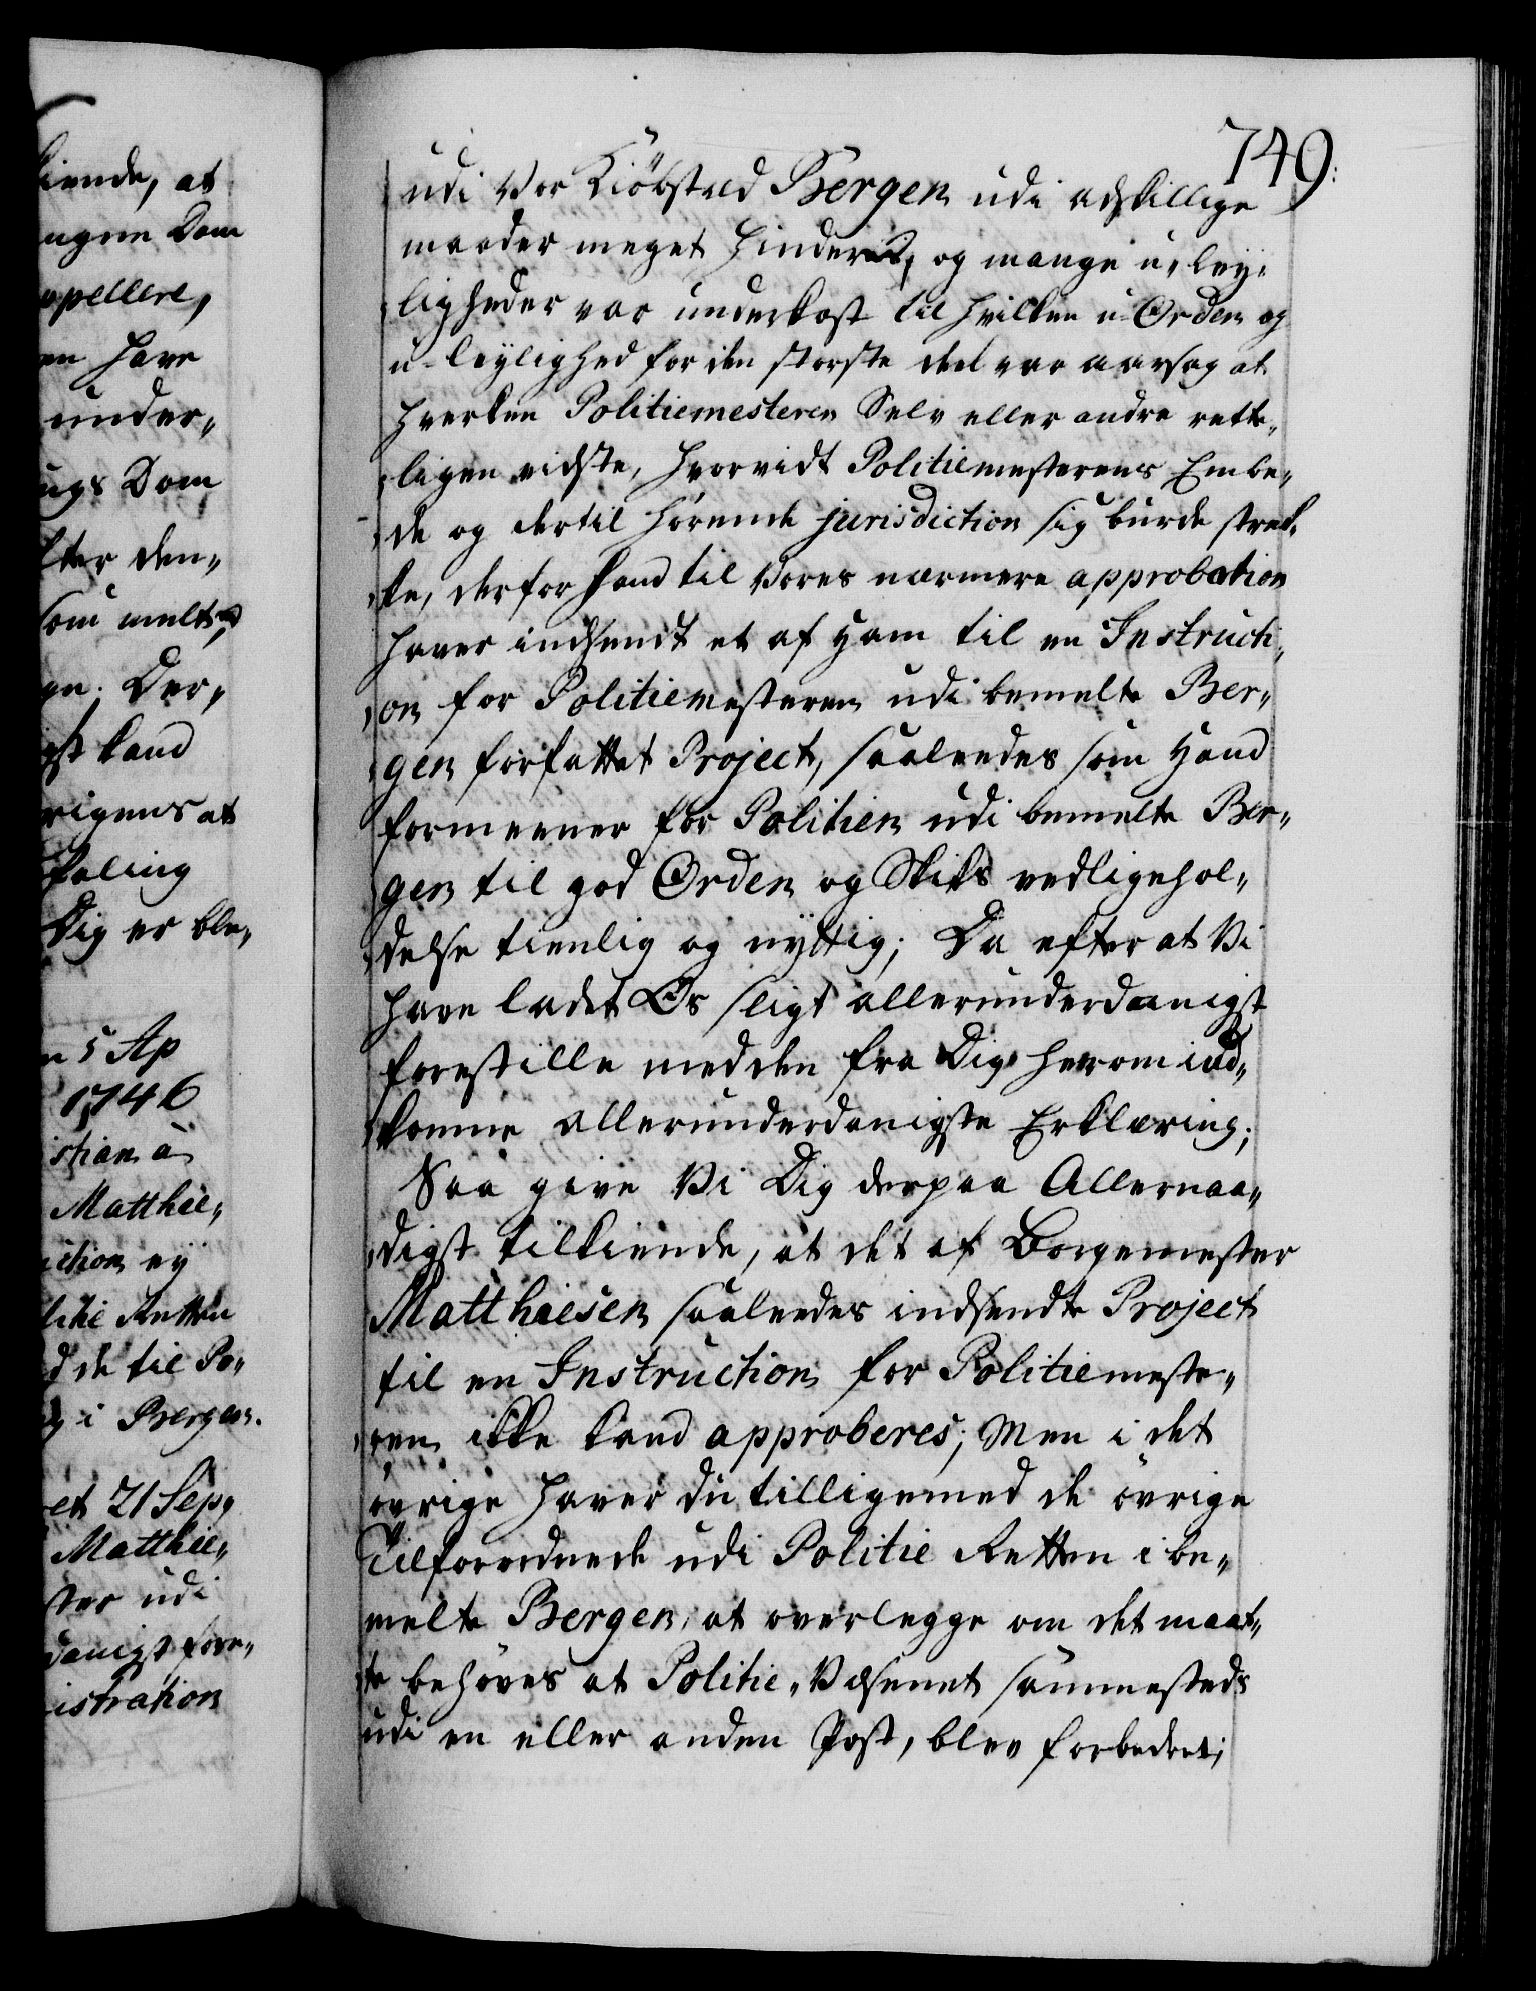 749:
udi Vor Kiöbsted Bergen udi adskillige
maader meget hindres, og mange u-ley-
ligheder var underkast til hvilken u-Orden og
u-leylighed for den störste deel var aarsag at
hverken Politiemesteren Selv eller andre rette-
ligen vidste, hvorvidt Politiemesterens Embe-
de og dertil hörende jurisdiction sig burde strek-
ke, derfor hand til Vores nærmere approbation
haver indsendt et af ham til en Instructi-
on for Politiemesteren udi bemelte Ber-
gen forfattet Project, saaleedes som hand
formeener for Politien udi bemelte Ber-
gen til god Orden og Skiks vedligehol-
delse tienlig og nyttig; Da efter at Vi
have ladet Os sligt allerunderdanigst
forestille med den fra Dig herom ind-
komne allerunderdanigste Erklæring;
Saa give Vi Dig derpaa Allernaa-
digst tilkiende, at det af Borgemester
Matthiesen saaleedes indsendte Project
til en Instruction for Politiemeste-
ren ikke kand approberes; Men i det
övrige haver du tilligemed de övrige
Tilforordnede udi Politie Retten i be-
melte Bergen, at overlegge om det maat-
te behöves at Politie-Væsenet sammesteds
udi en eller anden Post, blev forbedret;
kiende, at
Dom
appellere,
en have
under-
Dom
efter den-
som melt
Der-
kand
at
Dig er ble-
5 Ap
1746
Matthie-
ction ey
Retten
de til Po-
i Bergen.
21 Sep,
Matthie-
udi
fore-
istration